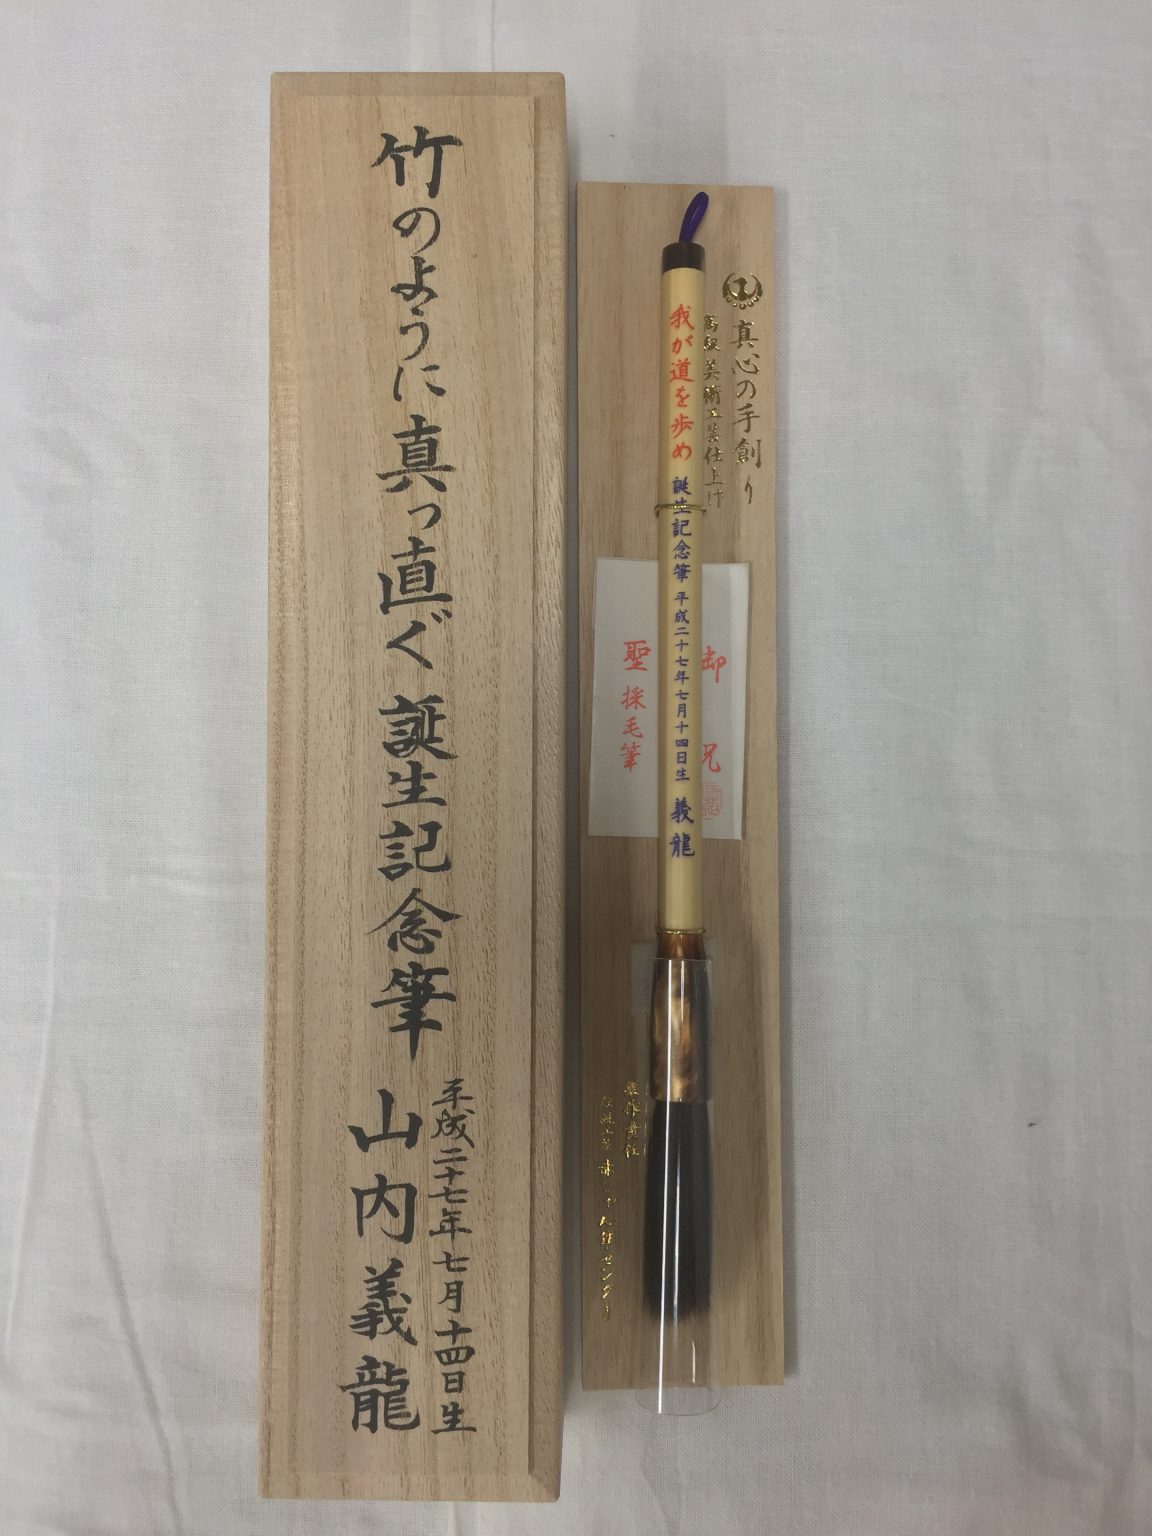 竹のように真っ直ぐ誕生記念筆
平成二十七年七月十四日生
山内義龍
真心の手創り
高級美術工芸仕上げ
我が道を歩め 誕生記念筆 平成二十七年七月十四日生 義龍
御祝
聖採毛筆
製作責任
伝統工芸 赤ちゃん筆センター